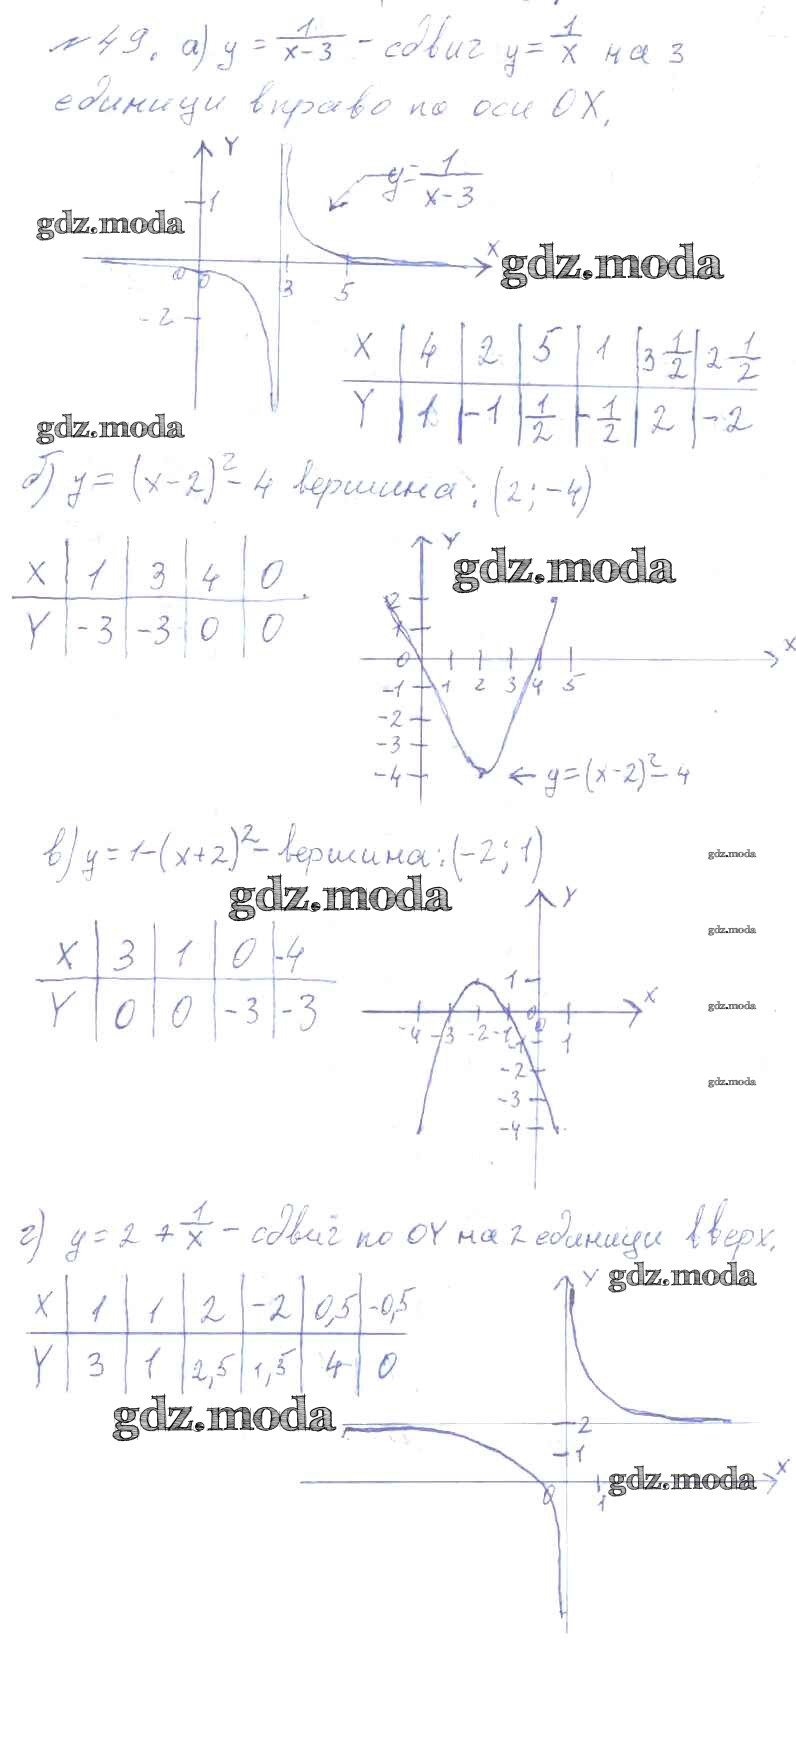 №49. а) y = 1/(x-3) - сдвиг y = 1/x на 3
единици вправо по оси OX.
Y
y = 1/(x-3)
1
gdz.moda
X
gdz.moda
0 0 3 5
-2
X | 4 | 2 | 5 | 1 | 3 1/2 | 2 1/2
Y | 1 | -1 | 1/2 | -1/2 | 2 | -2
gdz.moda
б) y = (x-2)² - 4 вершина: (2; -4)
X | 1 | 3 | 4 | 0
Y | -3 | -3 | 0 | 0
Y
gdz.moda
2
1
X
0 1 2 3 4 5
-1
-2
-3
-4
← y = (x-2)² - 4
в) y = 1-(x+2)² - вершина: (-2; 1)
gdz.moda
gdz.moda
Y
gdz.moda
X | 3 | 1 | 0 | -4
Y | 0 | 0 | -3 | -3
1
X
gdz.moda
-4 -3 -2 -1 0 0 1
-1
-2
gdz.moda
-3
-4
г) y = 2 + 1/x - сдвиг по OY на 2 единици вверх.
X | 1 | 1 | 2 | -2 | 0,5 | -0,5
Y | 3 | 1 | 2,5 | 1,5 | 4 | 0
Y
gdz.moda
gdz.moda
2
1
X
gdz.moda
0 1